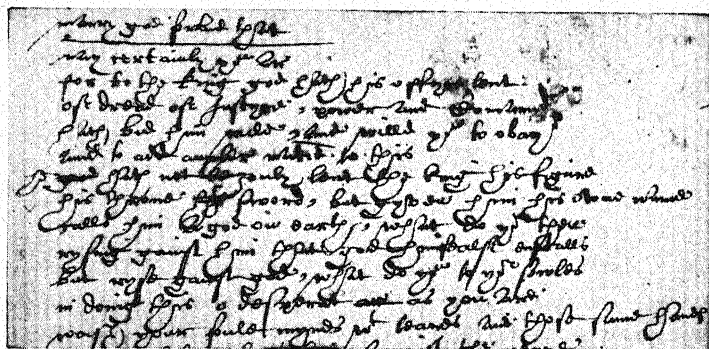 marry god forbid that
nay certainly you ar
for to the king god hath his offyc lent
of dread of Iustyce, power and Comaund
hath bid him rule, and willd you to obay
and to add ampler matie to this
he god hath not le only lent the king his figure
his throne his sword, but gyven him his owne name
calls him a god on earth, what do you then
rysing gainst him that god himsealf enstalls
but ryse gainst god, what do you to yor sowles
in doing this o desperat ar as you are
wash your foule mynds wt teares and those same handes